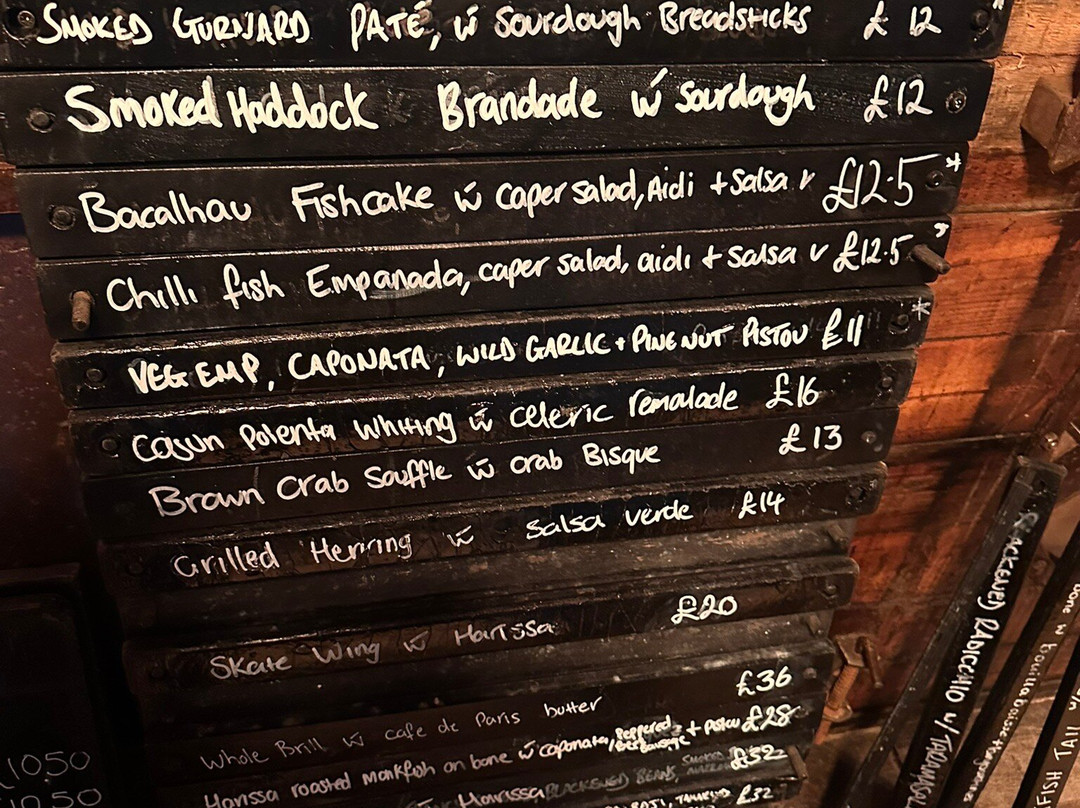 SMOKED GURNARD PATÉ, w̄ Sourdough Breadsticks £12 *
Smoked Haddock Brandade w̄ Sourdough £12
Bacalhau Fishcake w̄ caper salad, Aioli + Salsa v £12.5 *
Chilli fish Empanada, caper salad, aioli + Salsa v £12.5 *
VEG EMP, CAPONATA, WILD GARLIC + PINE NUT PISTOU £11 *
Cajun Polenta Whiting w̄ celeric remalade £16
Brown Crab Souffle w̄ crab Bisque £13
Grilled Herring w̄ Salsa verde £14
Skate Wing w̄ Harissa £20
Whole Brill w̄ cafe de Paris butter £36
Harissa roasted monkfish on bone w̄ caponata, + pistou £28
Harissa BLACKENED BEANS, SMOKED £32
TAMARIND £32
10.50
10.50
RADICCHIO w/
bone w bouillabaisse
FISH TAIL